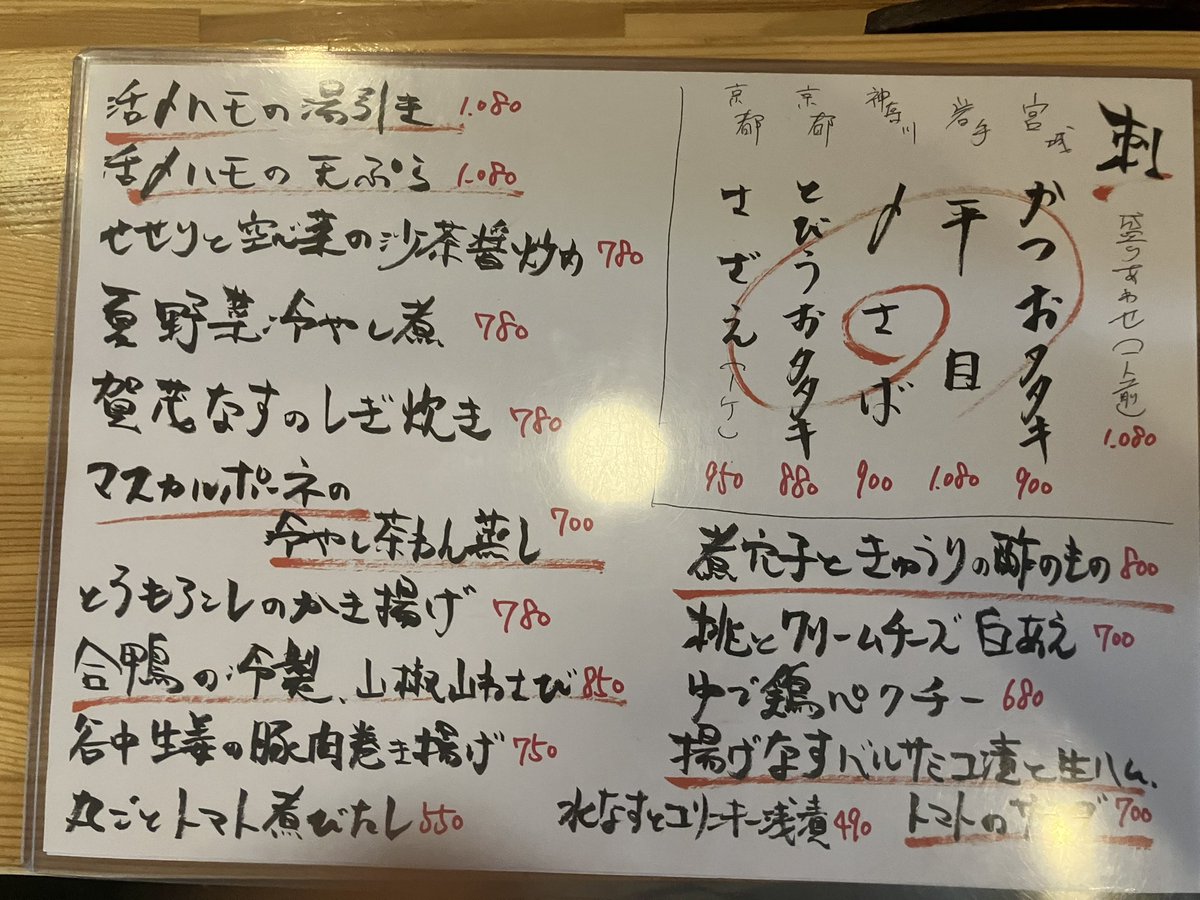 活〆ハモの湯引き 1.080
活〆ハモの天ぷら 1.080
せせりと空心菜の沙茶醤炒め 780
夏野菜冷やし煮 780
賀茂なすのしぎ炊き 780
マスカルポーネの
冷やし茶わん蒸し 700
とうもろこしのかき揚げ 780
合鴨の冷製、山椒山わさび 850
谷中生姜の豚肉巻き揚げ 750
丸ごとトマト煮びたし 550
刺
盛りあわせ(一人前) 1.080
宮城 かつおタタキ 900
岩手 平目 1.080
神奈川 〆さば 900
京都 とびうおタタキ 880
京都 さざえ(一ケ) 950
煮穴子ときゅうりの酢のもの 800
桃とクリームチーズ白あえ 700
ゆで鶏パクチー 680
揚げなすバルサミコ漬と生ハム、
トマトの 700
水なすとコリンキー浅漬 490